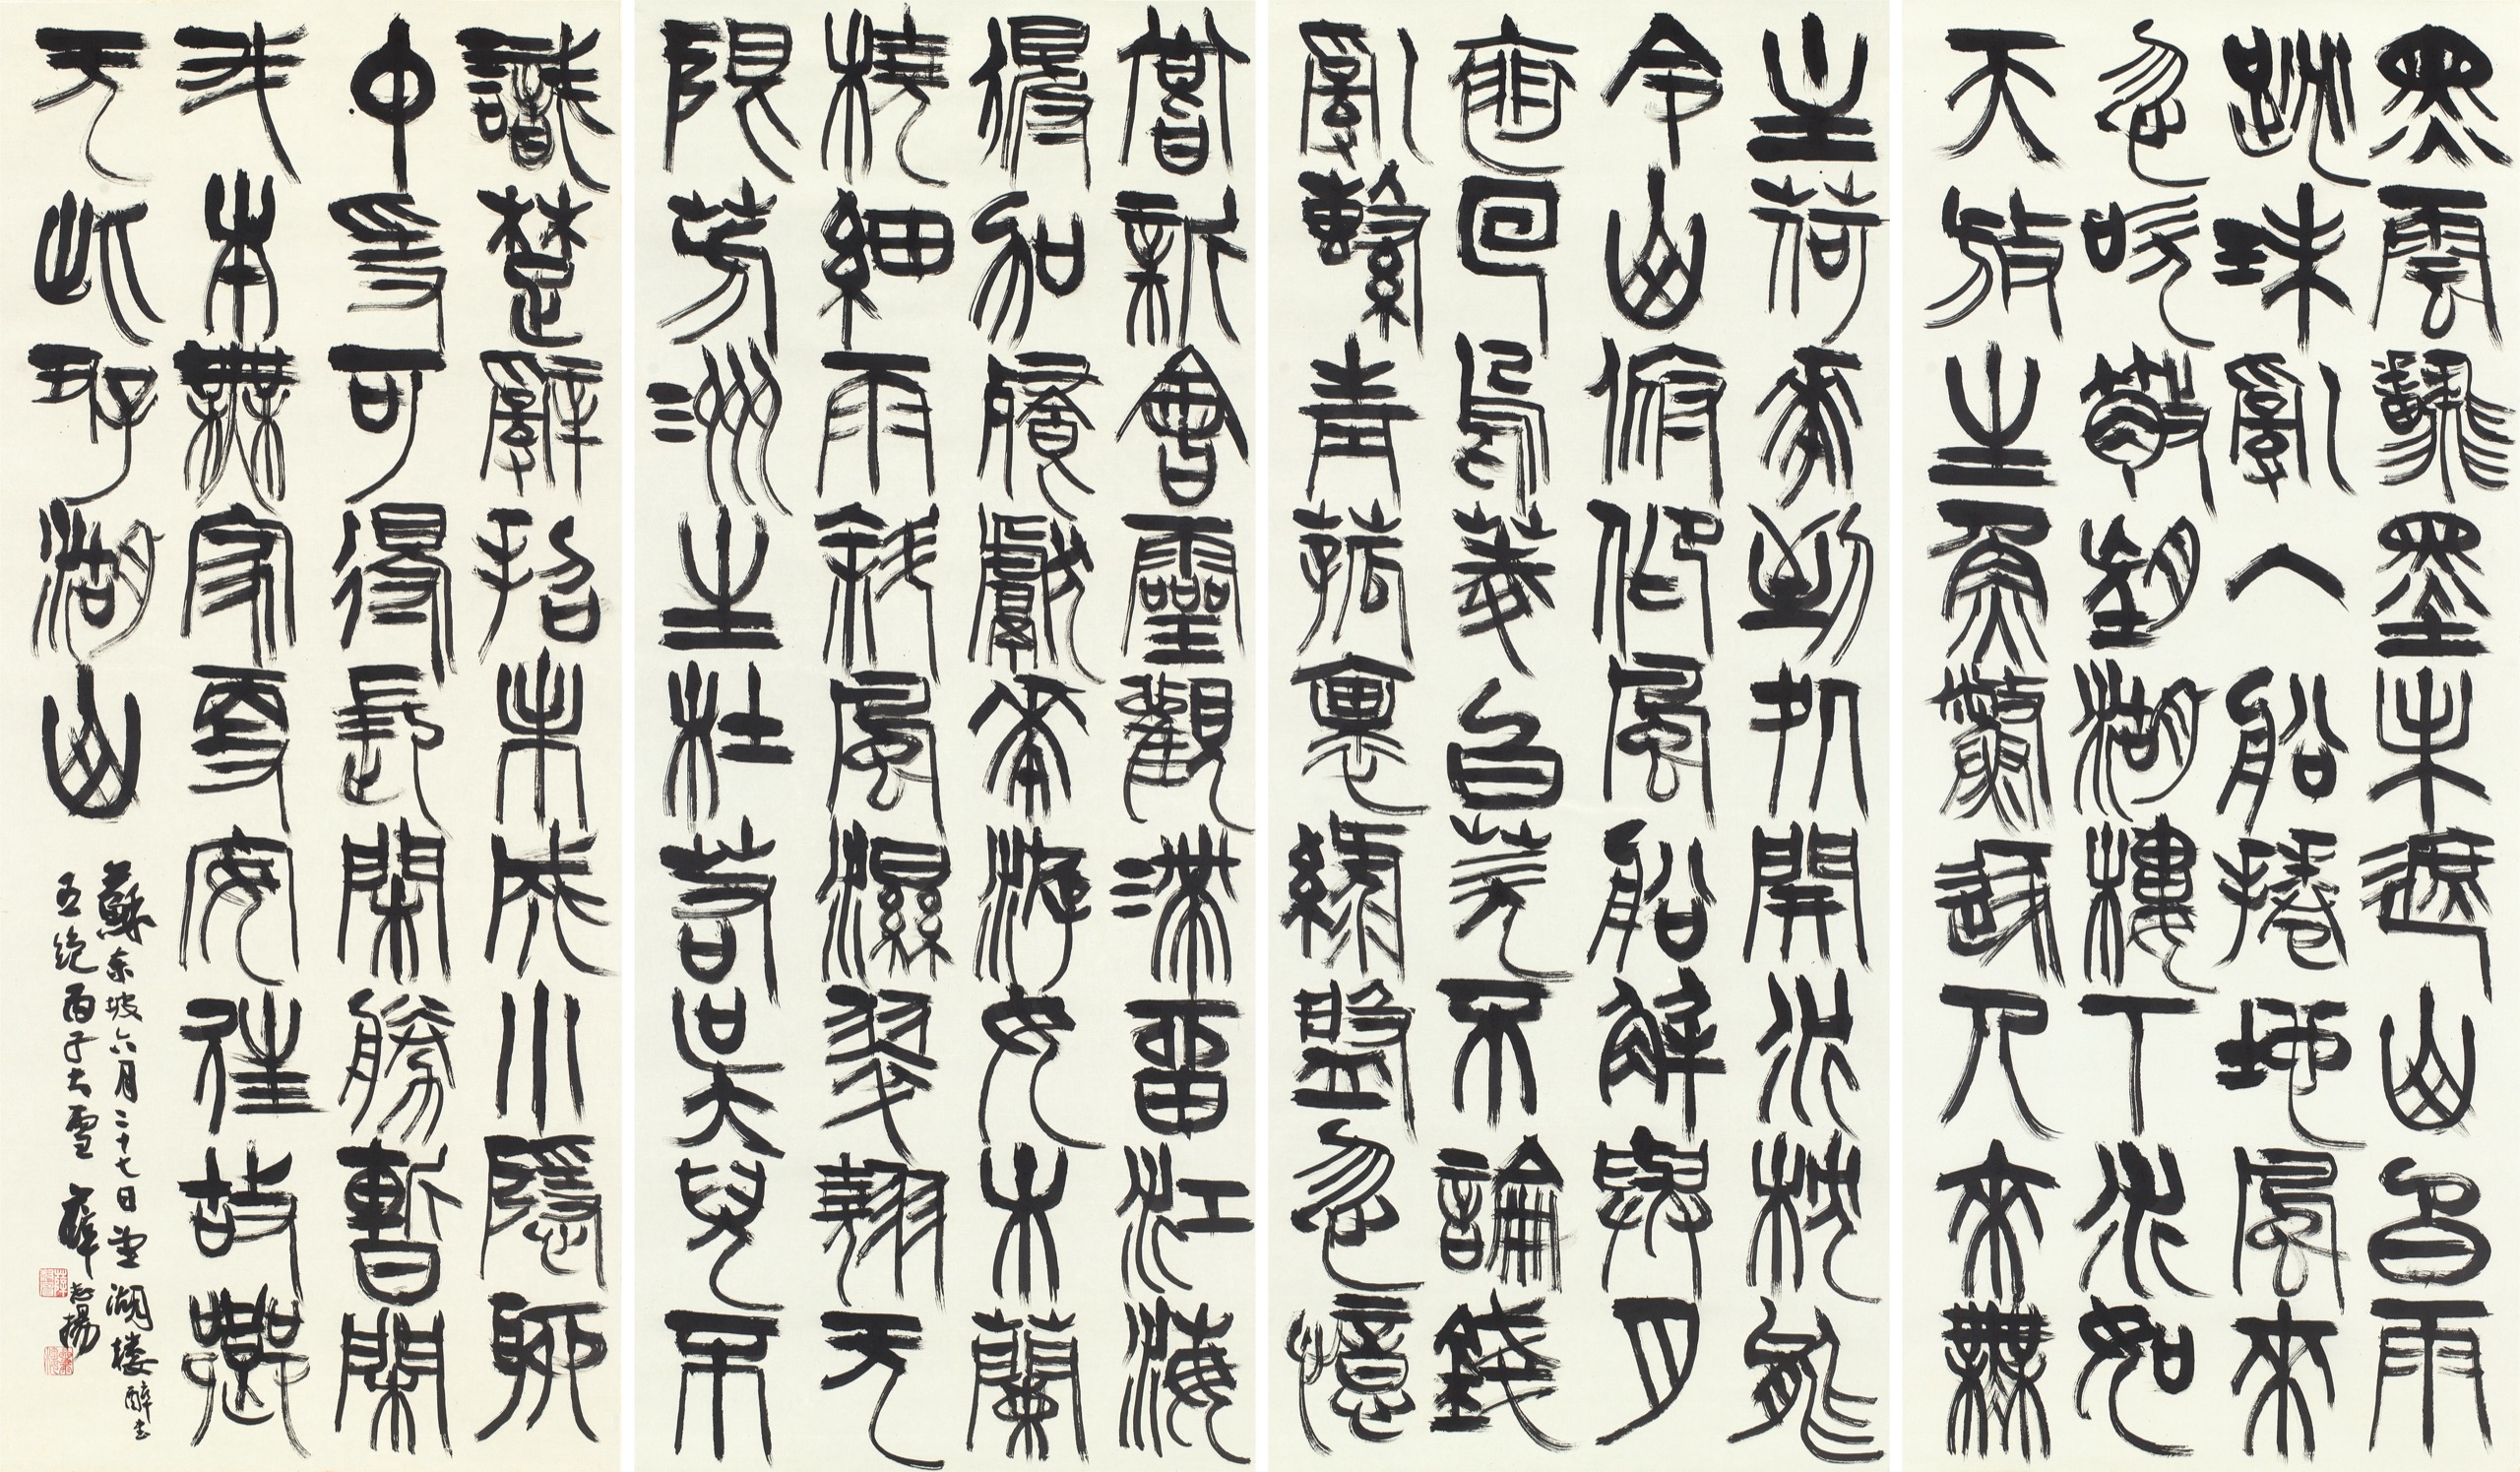 黑雲翻墨未遮山白雨
跳珠亂入船捲地風來
忽吹散望湖樓下水如
天放生魚鱉逐人來無
主荷華到処開水枕能
令山俯仰風船解與月
裵回烏菱白芡不論錢
亂繫青菰裹綠盤忽憶
嘗新會靈觀滯留江海
得加餐獻華游女木蘭
橈細雨斜風濕翠翹无
限芳洲生杜若吳兒不
識楚辭招未成小隱聊
中㥯可得長閒勝暫閒
我本無家更安往故鄉
无此好湖山
蘇東坡六月二十七日望湖樓醉書
五絕丙子大雪 薛志揚